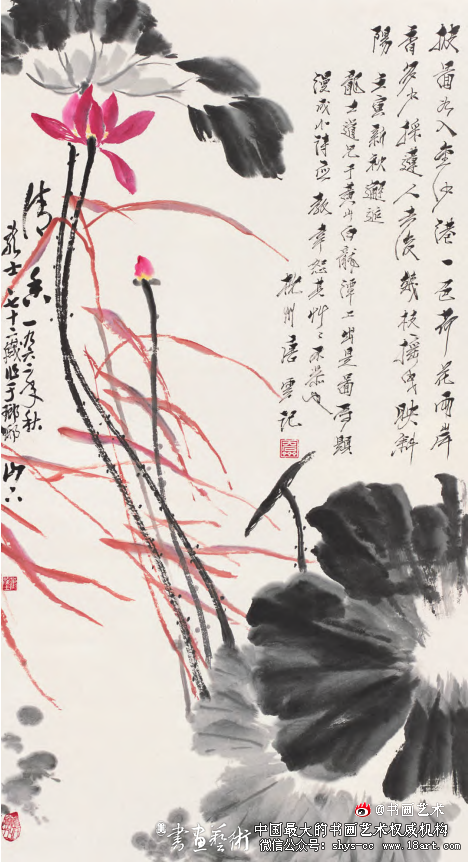 披圖如入金沙港一色荷花兩岸
香多少採蓮人去後幾枝搖曳映斜
陽 壬寅新秋邂逅
龍士道兄于黃山白龍潭上出是圖屬題
漫成小詩應教幸恕其艸〻不恭也
杭州唐雲記
清香 一九六二年秋
士七十二歲 于琅琊山下
@书画艺术
書畫藝術
中国最大的书画艺术权威机构
微信公众号：shys-cc www.18art.com